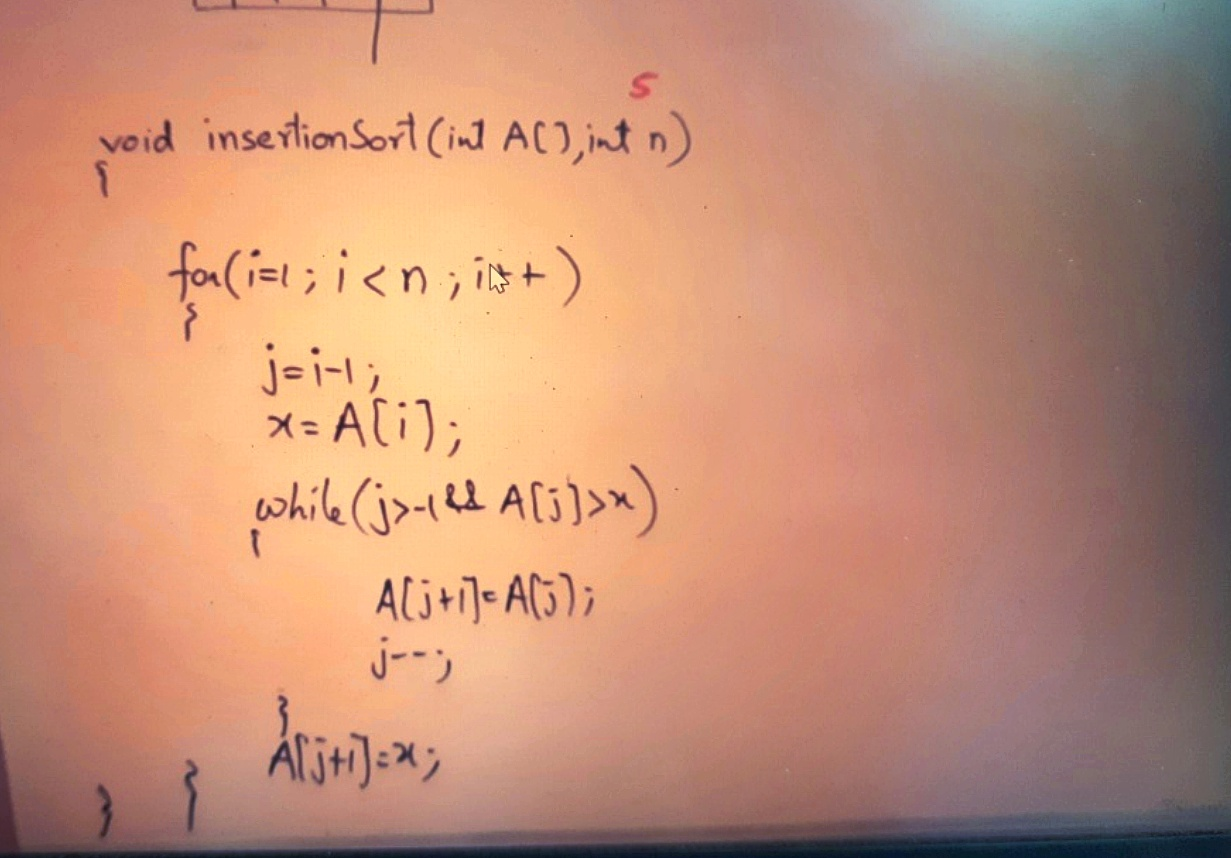 5
void insertionSort(int A[],int n)
{
for(i=1; i<n; i++)
{
j=i-1;
x=A[i];
while(j>-1 && A[j]>x)
{
A[j+1]=A[j];
j--;
}
A[j+1]=x;
}
}